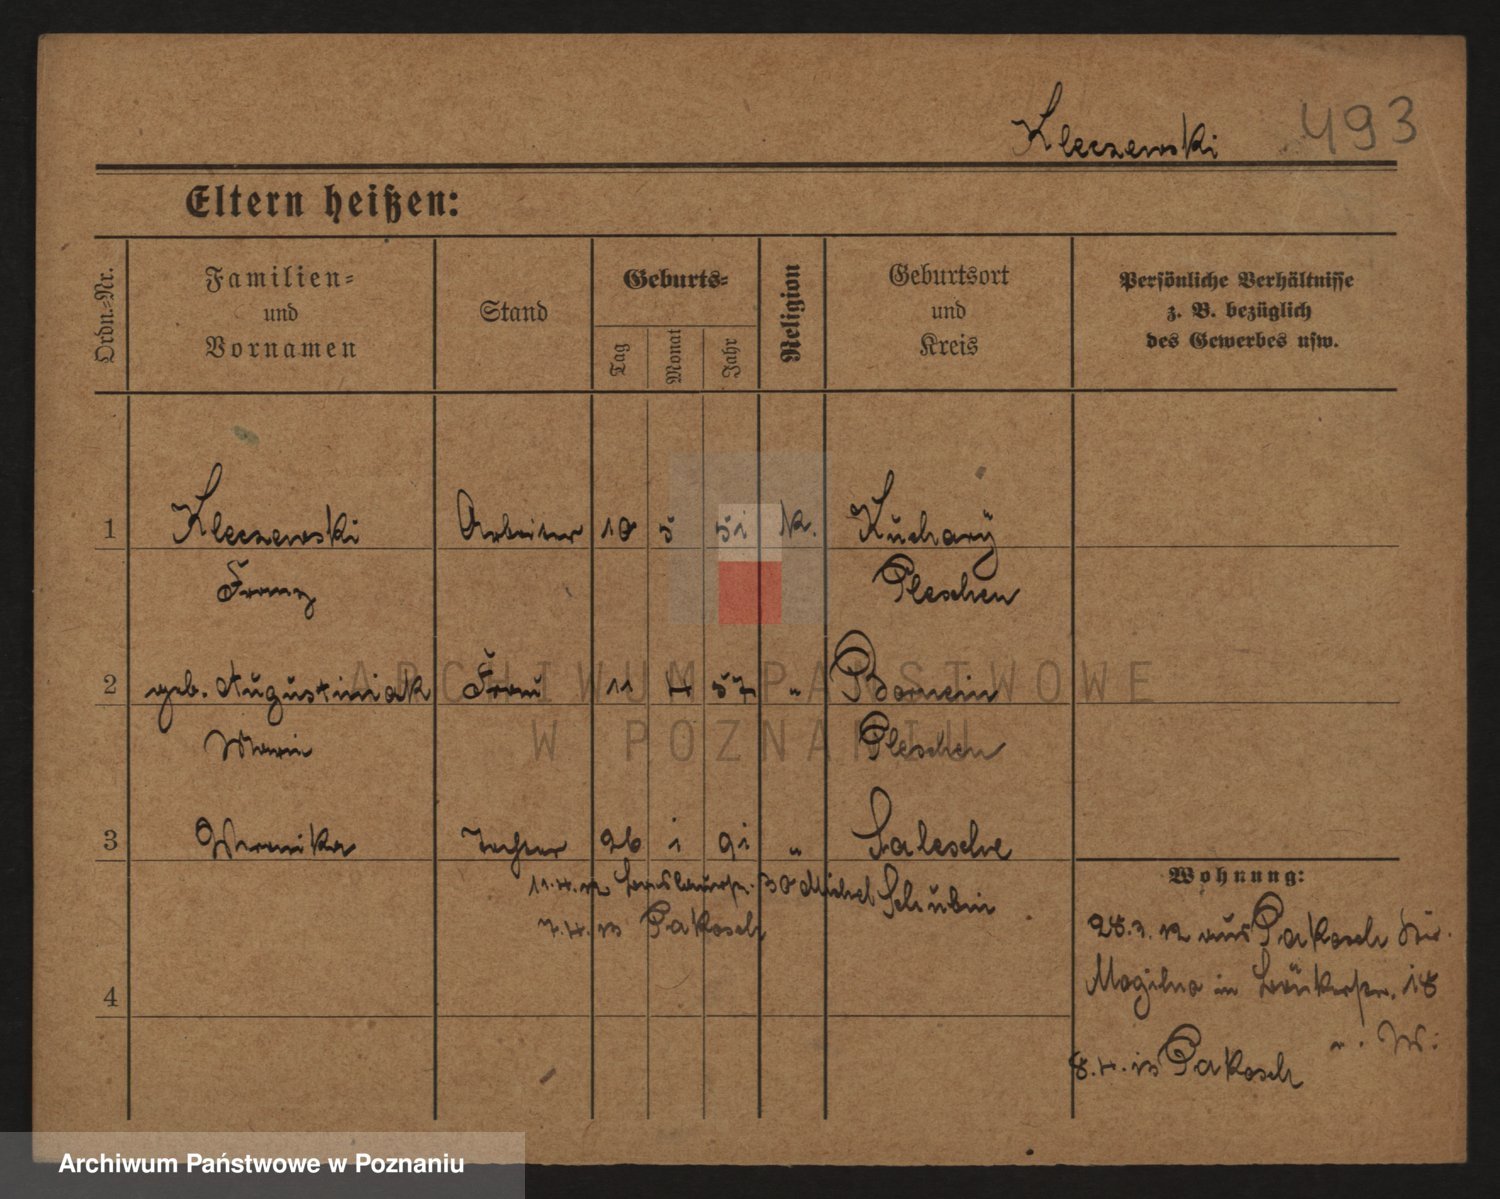 Kleczewski 493
Eltern heißen:
Ordn.-Nr. Familien- und Vornamen Stand Geburts- Tag Monat Jahr Religion Geburtsort und Kreis Persönliche Verhältnisse z. B. bezüglich des Gewerbes usw.
1 Kleczewski Arbeiter 10 5 51 k. Kuchary
Franz Pleschen
2 geb. Augustiniak Frau 11 4 57 "
Marie Pleschen
3 Veronika Tochter 26 1 91 " Salesche
Wohnung:
11.4.12 30 Michel Schubin
7.4.13 Pakosch
28.3.12 aus Pakosch
Mogilno in 18
4
u. W.
8.4.13 Pakosch
ARCHIWUM PAŃSTWOWE
W POZNANIU
Archiwum Państwowe w Poznaniu